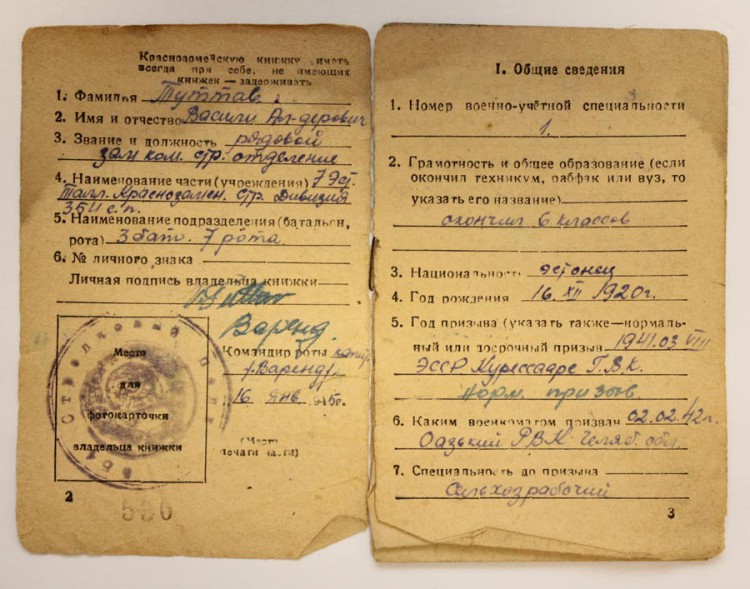 Красноармейскую книжку иметь
всегда при себе, не имеющих
книжек — задерживать
1. Фамилия Туттав
2. Имя и отчество Василий Ал-дерович
3. Звание и должность рядовой
зам ком. стр. отделения
4. Наименование части (учреждения) 7 Эст.
Талл. Краснознамен. стр. Дивизия
354 с. п.
5. Наименование подразделения (батальон,
рота) 3 бат. 7 рота
6. № личного знака
Личная подпись владельца книжки
Варенд.
Командир роты
/Варенд/
16 янв. 1945г.
Место
для
фотокарточки
владельца книжки
(Место
печати части)
Стрелковый Полк
2
550
I. Общие сведения
1. Номер военно-учётной специальности
1.
2. Грамотность и общее образование (если
окончил техникум, рабфак или вуз, то
указать его название)
окончил 6 классов
3. Национальность эстонец
4. Год рождения 16. XII 1920г.
5. Год призыва (указать также—нормаль-
ный или досрочный призыв 1941.03 VIII
ЭССР Курессааре Г.В.К.
норм. призыв
6. Каким военкоматом призван 02.02.42г.
РВК Челяб. обл.
7. Специальность до призыва
Сельхозрабочий
3